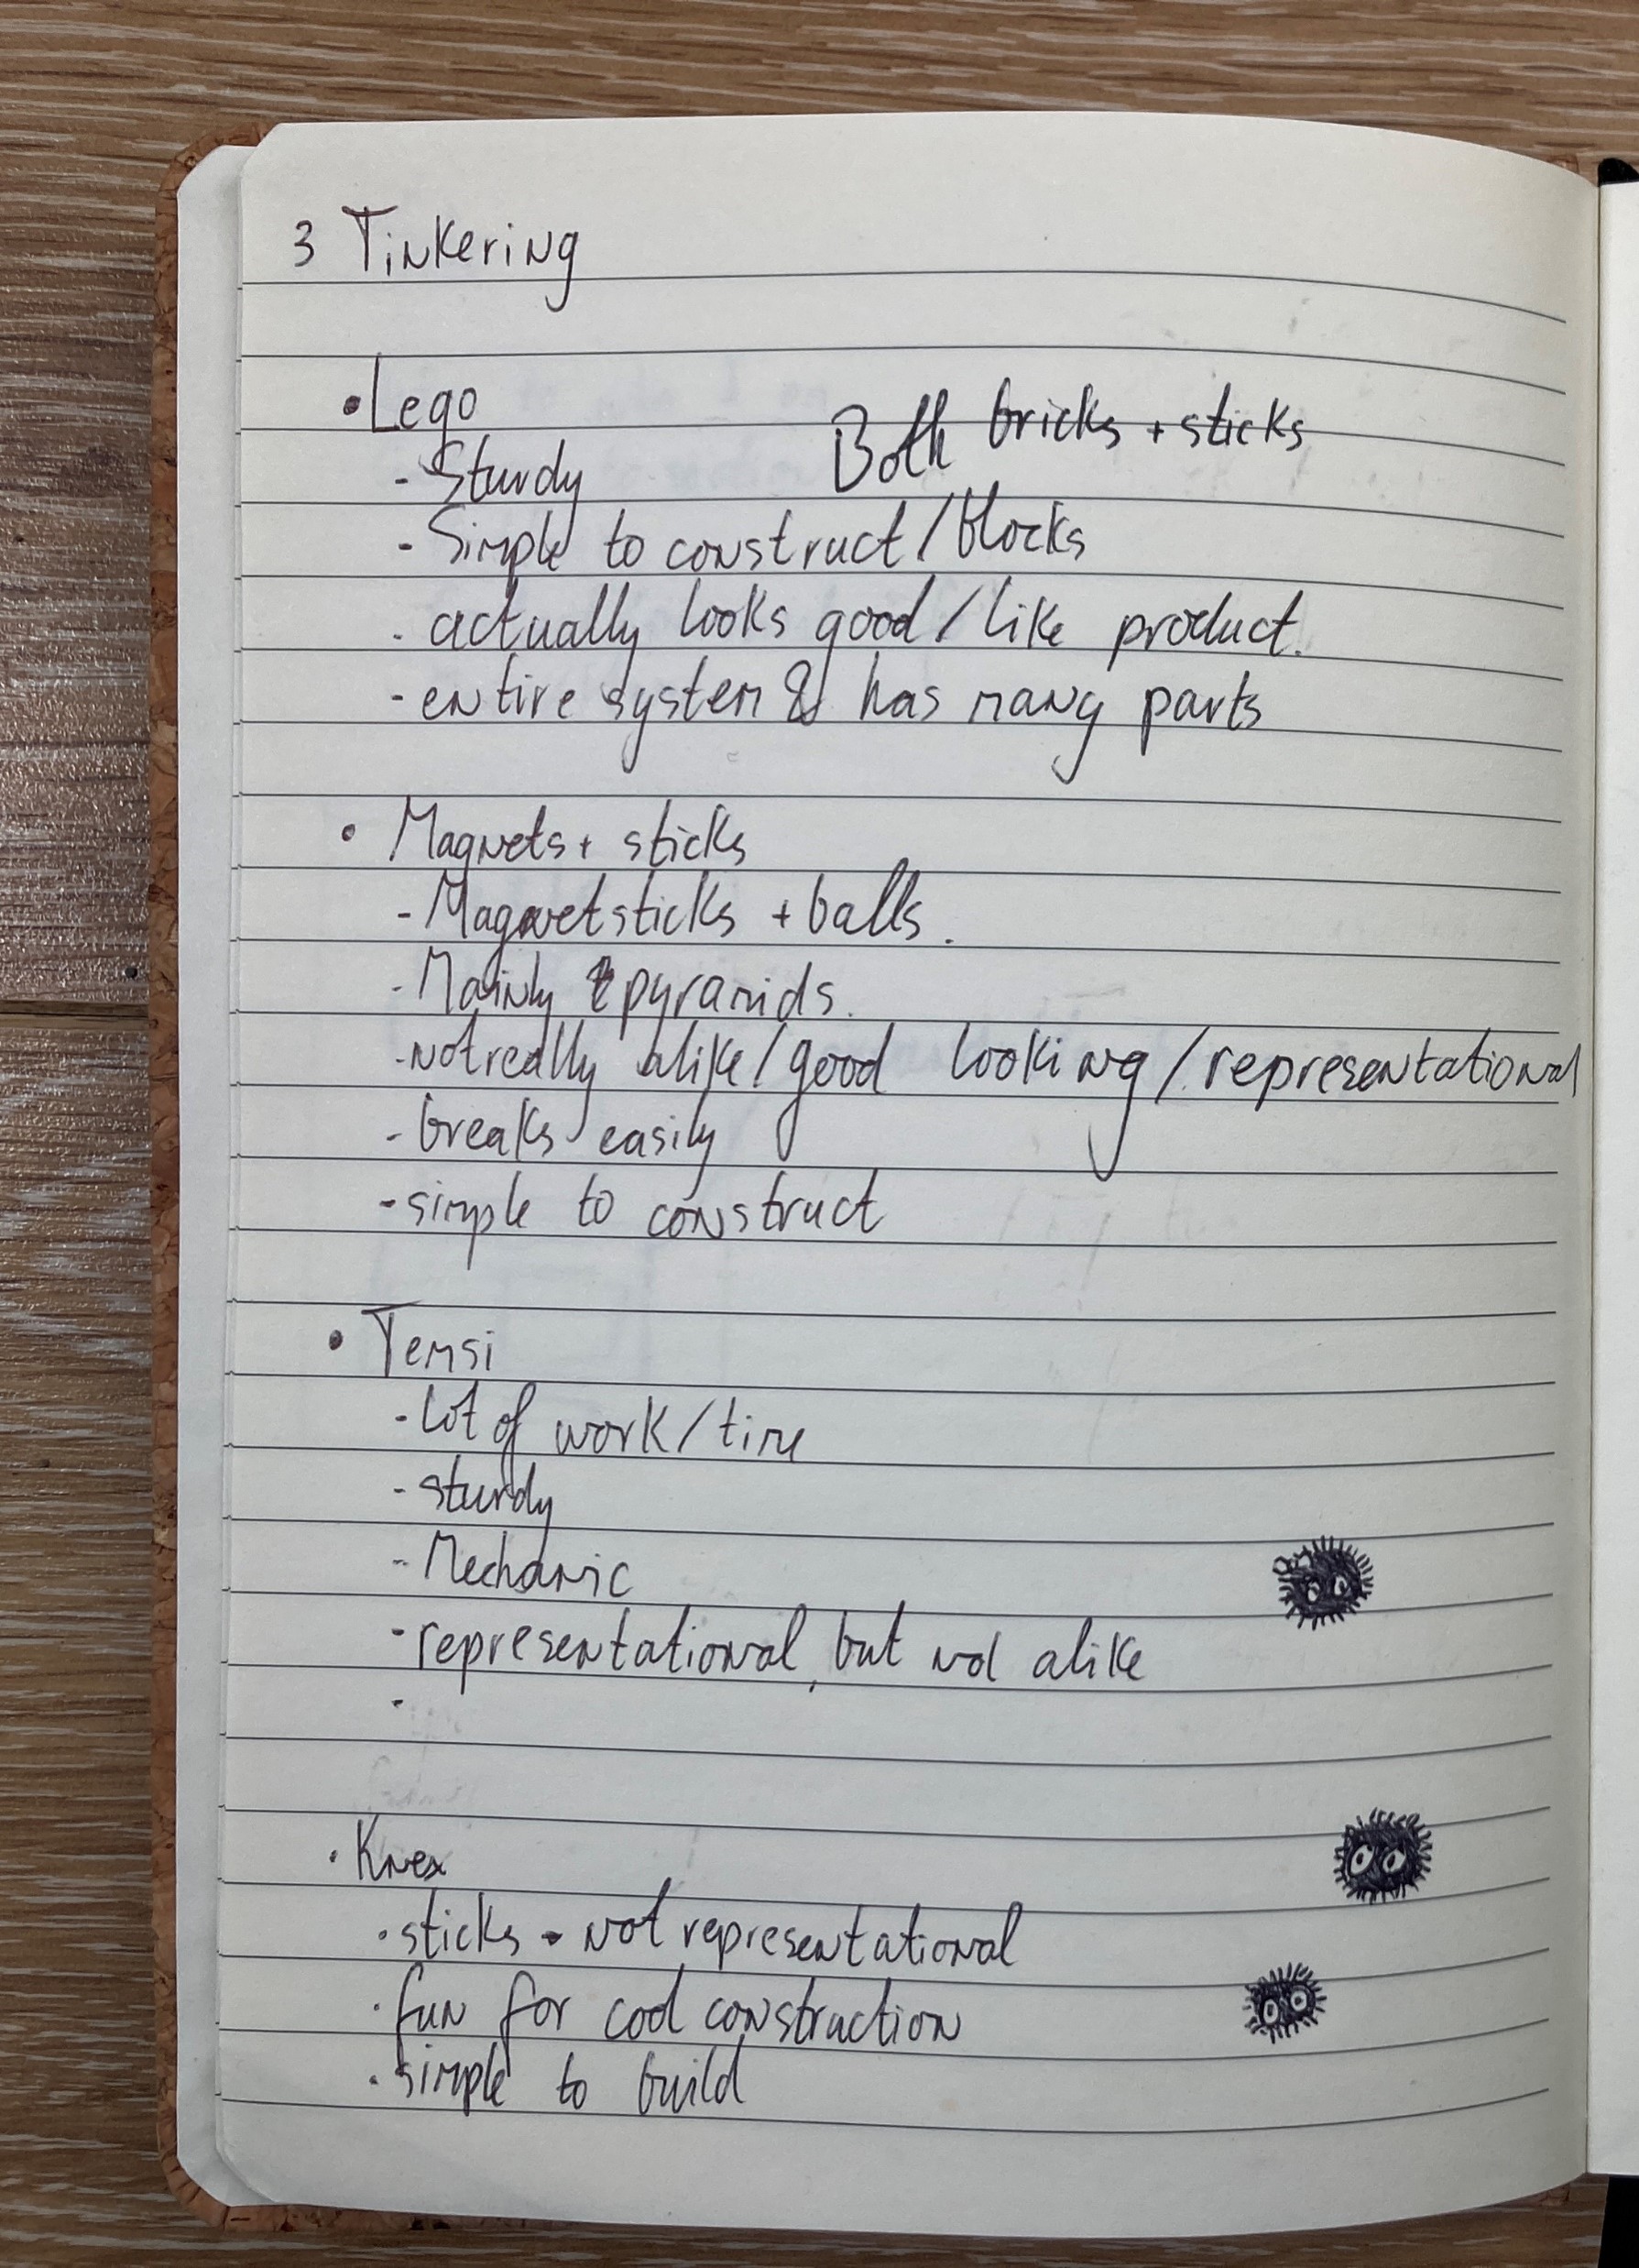 3 Tinkering
• Lego
Both bricks + sticks
- Sturdy
- Simple to construct / blocks
- actually looks good / like product.
- entire system & has many parts
• Magnets + sticks
- Magnetsticks + balls.
- Mainly pyramids.
- not really alike / good looking / representational
- breaks easily
- simple to construct
• Temsi
- Lot of work / time
- sturdy
- Mechanic
- representational, but not alike
-
• Knex
• sticks - not representational
• fun for cool construction
• simple to build